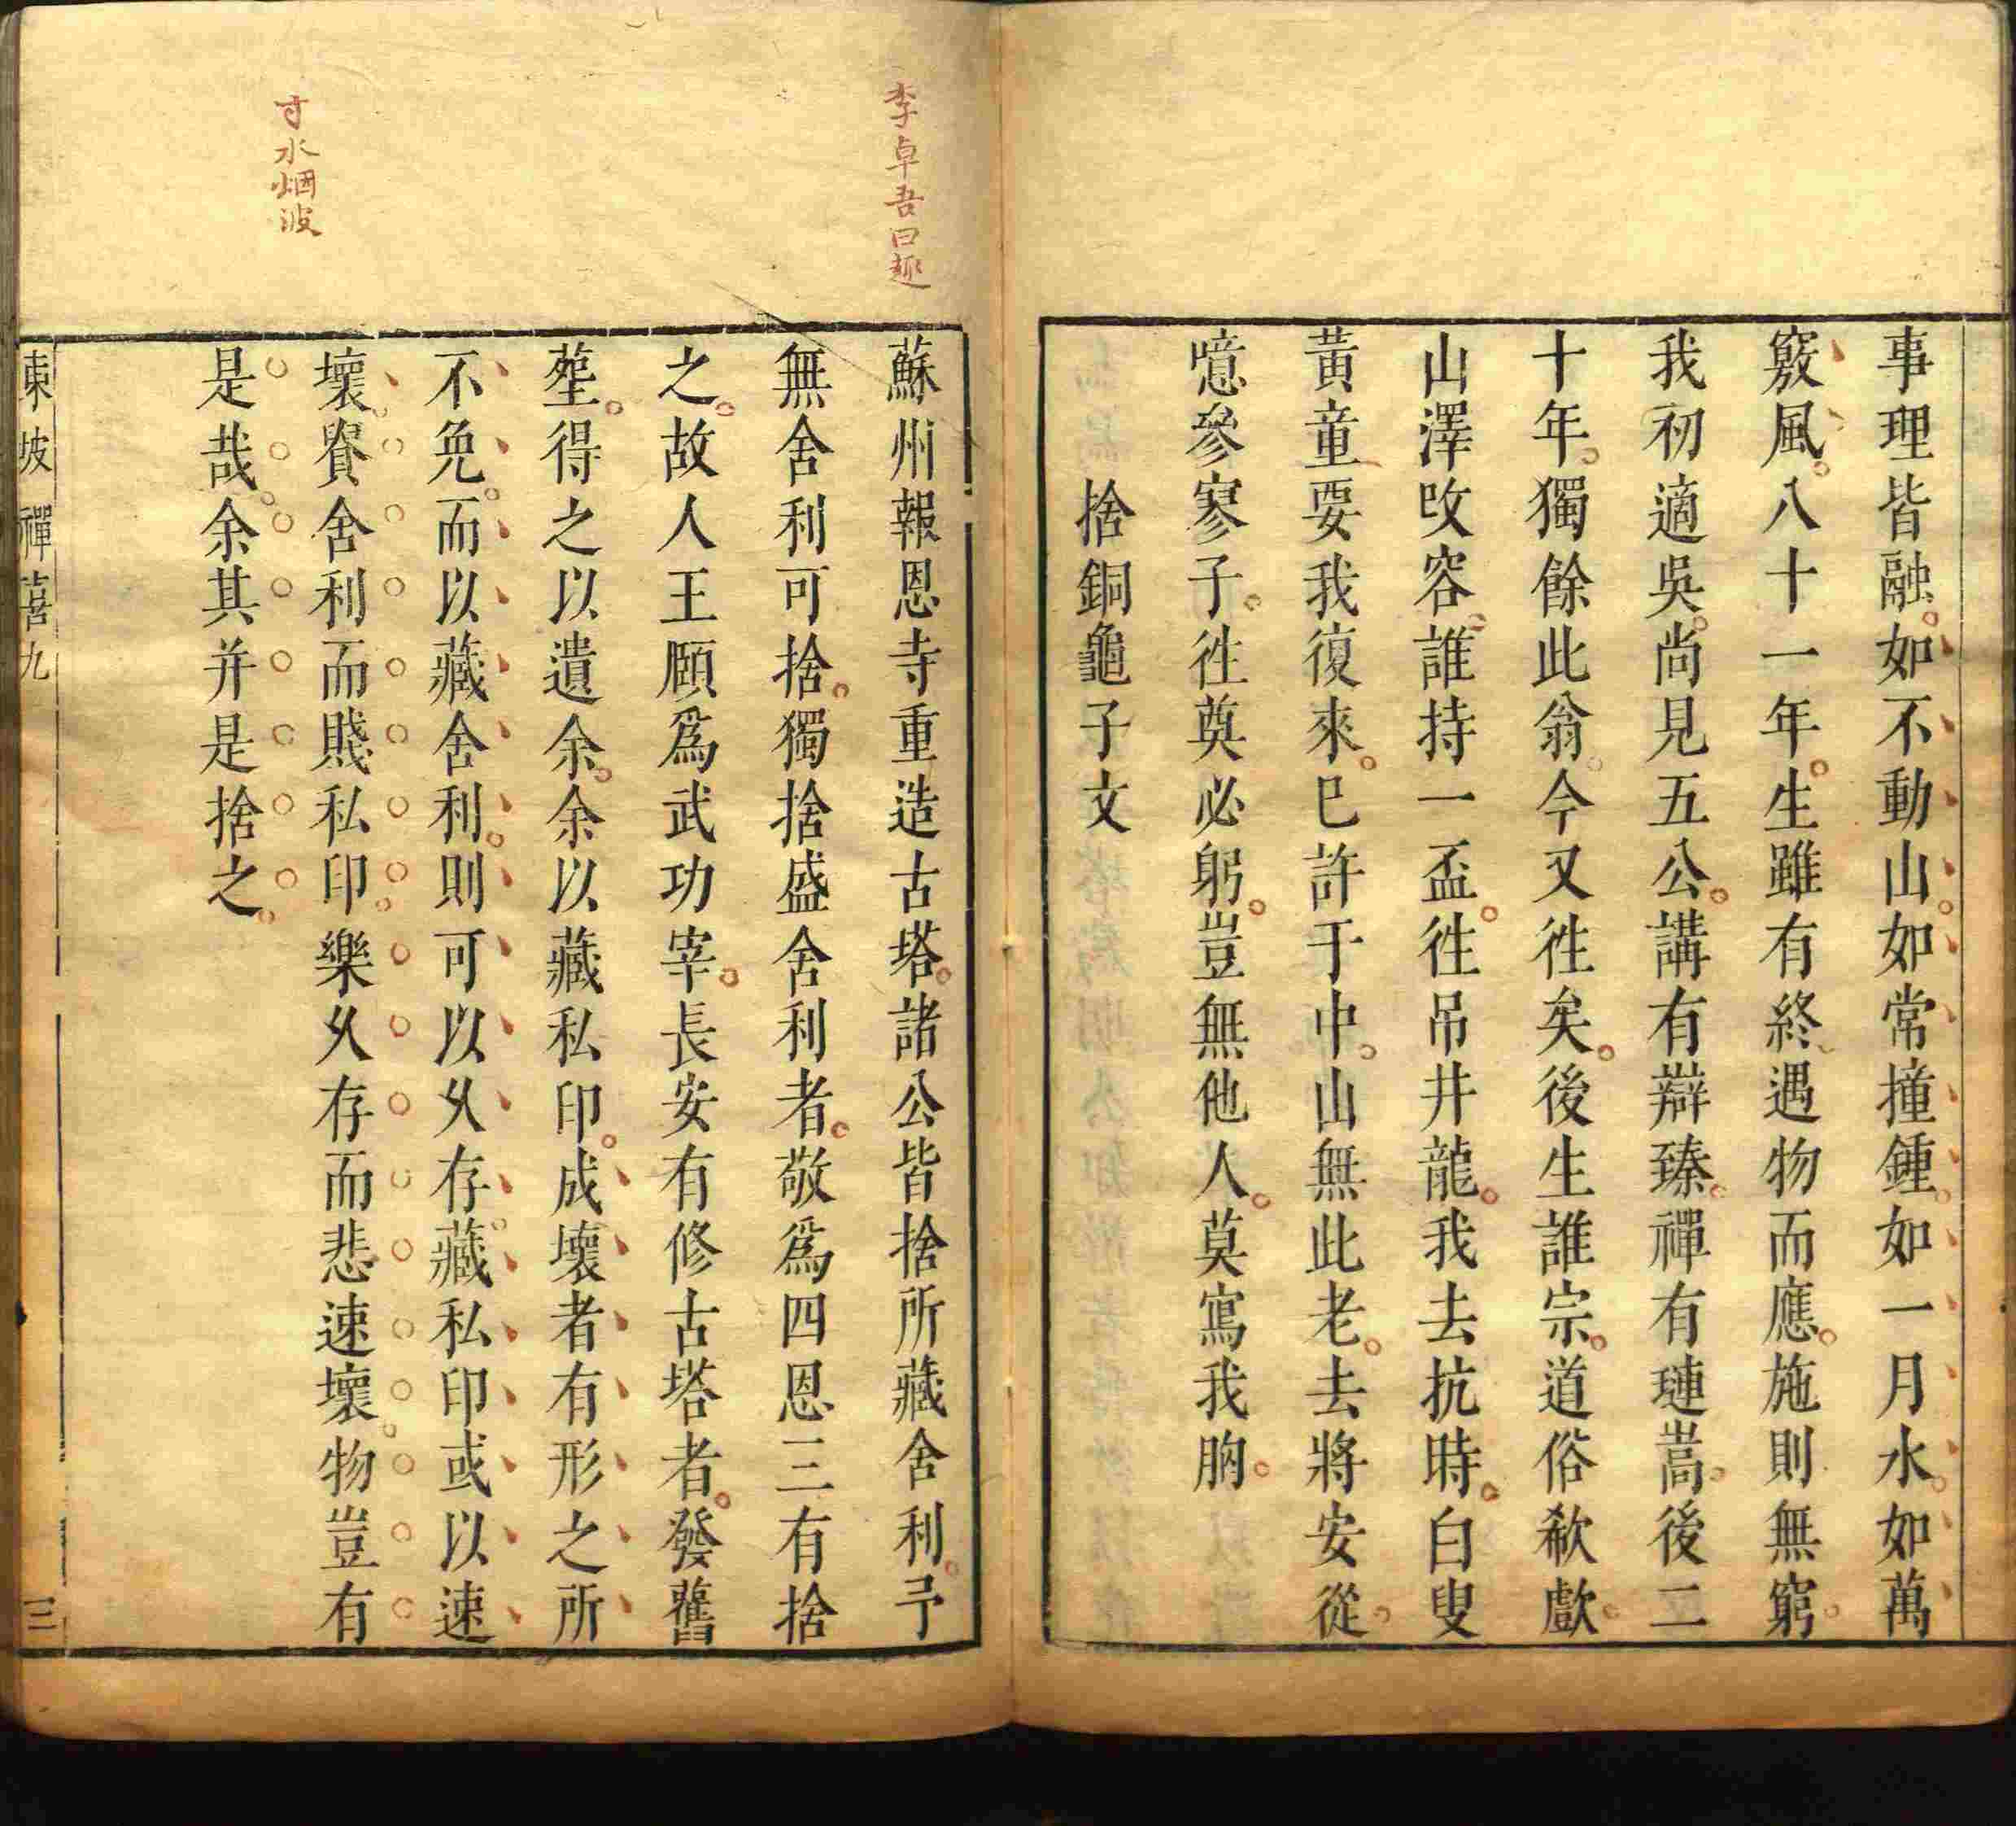 事理皆融如不動山如常撞鍾如一月水如萬
竅風八十一年生雖有終遇物而應施則無窮
我初適吳尚見五公講有辯臻禪有璉嵩後二
十年獨餘此翁今又徃矣後生誰宗道俗欷歔
山澤改容誰持一盃徃吊井龍我去杭時白叟
黃童要我復來已許于中山無此老去將安從
噫參寥子徃奠必躬豈無他人莫寫我胸
捨銅龜子文
李卓吾曰趣
蘇州報恩寺重造古塔諸公皆捨所藏舍利予
無舍利可捨獨捨盛舍利者敬爲四恩三有捨
之故人王頤爲武功宰長安有修古塔者發舊
塟得之以遺余余以藏私印成壞者有形之所
不免而以藏舍利則可以乆存藏私印或以速
壞貴舍利而賤私印樂乆存而悲速壞物豈有
是哉余其并是捨之
寸水烟波
東坡禪喜九
三